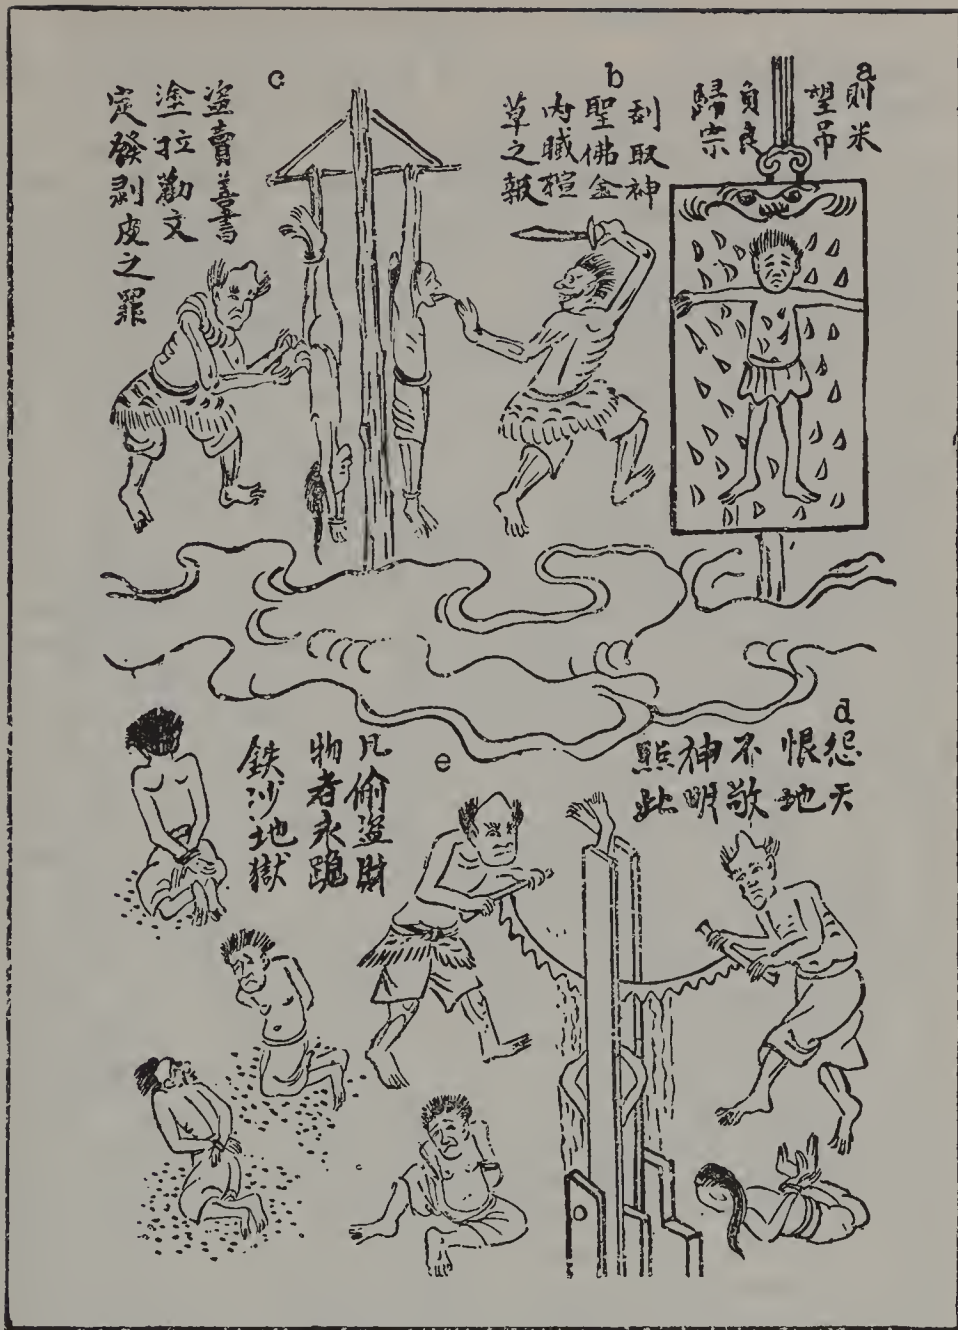 a
則米
望吊
負良
歸宗
b
刮取神
聖佛金
內臟
草之報
c
盗賣善書
塗拉勸文
定發剥皮之罪
d
怨天
恨地
不敬
神明
照此
e
凡偷盗財
物者永跪
鉄沙地獄